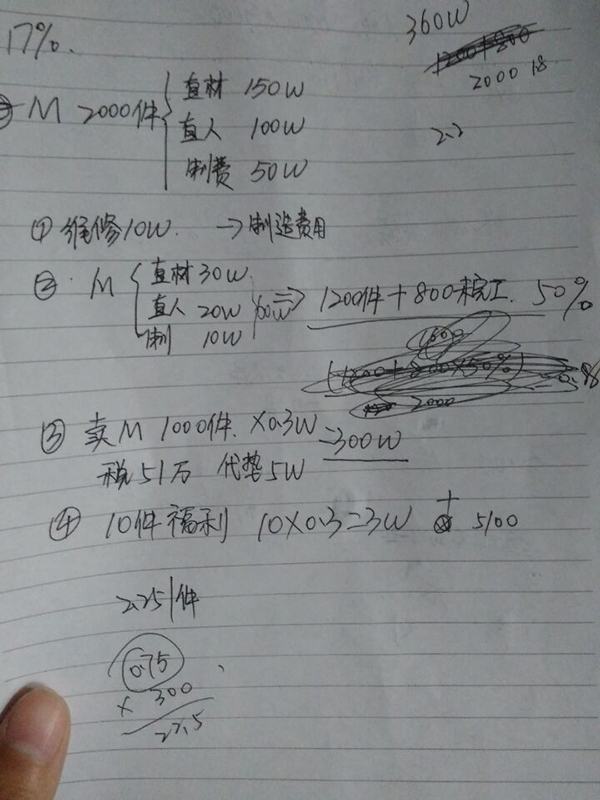 17%.
360W
2000 18
M 2000件 直材 150W
直人 100W
制费 50W
2.2
① 维修10W. → 制造费用
② M 直材 30W
直人 20W
制 10W
60W ⇒ 1200件+800未完工. 50%
2000
③ 卖M 1000件. ×0.3W=300W
税51万 代垫5W
④ 10件福利 10×0.3=3W + 5100
2.25/件
0.75
× 300
22.5